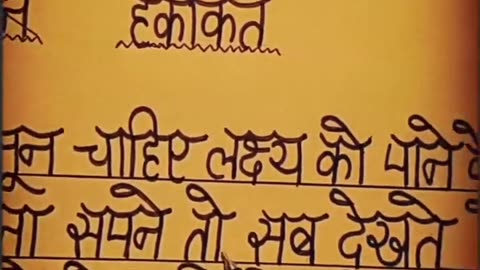 हकीकत
चाहिए लक्ष्य को पाने
सपने तो सब देखते